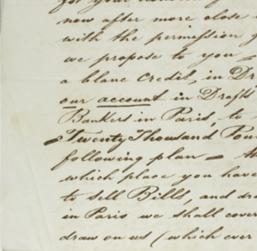 now after more close
with the permission
we propose to you
a blanc Credit, in Dr
our account in Drafts
Bankers in Paris, to
Twenty Thousand Pou
following plan —
which place you have
to sell Bills, and dra
in Paris we shall cover
draw on us (which over